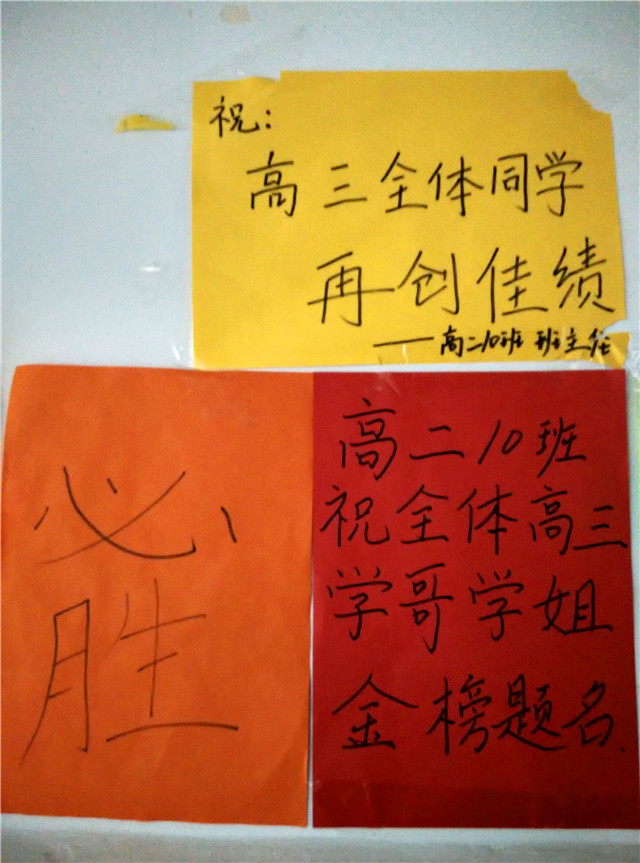 祝：
高三全体同学
再创佳绩
——高二10班 班主任
必
胜
高二10班
祝全体高三
学哥学姐
金榜题名.